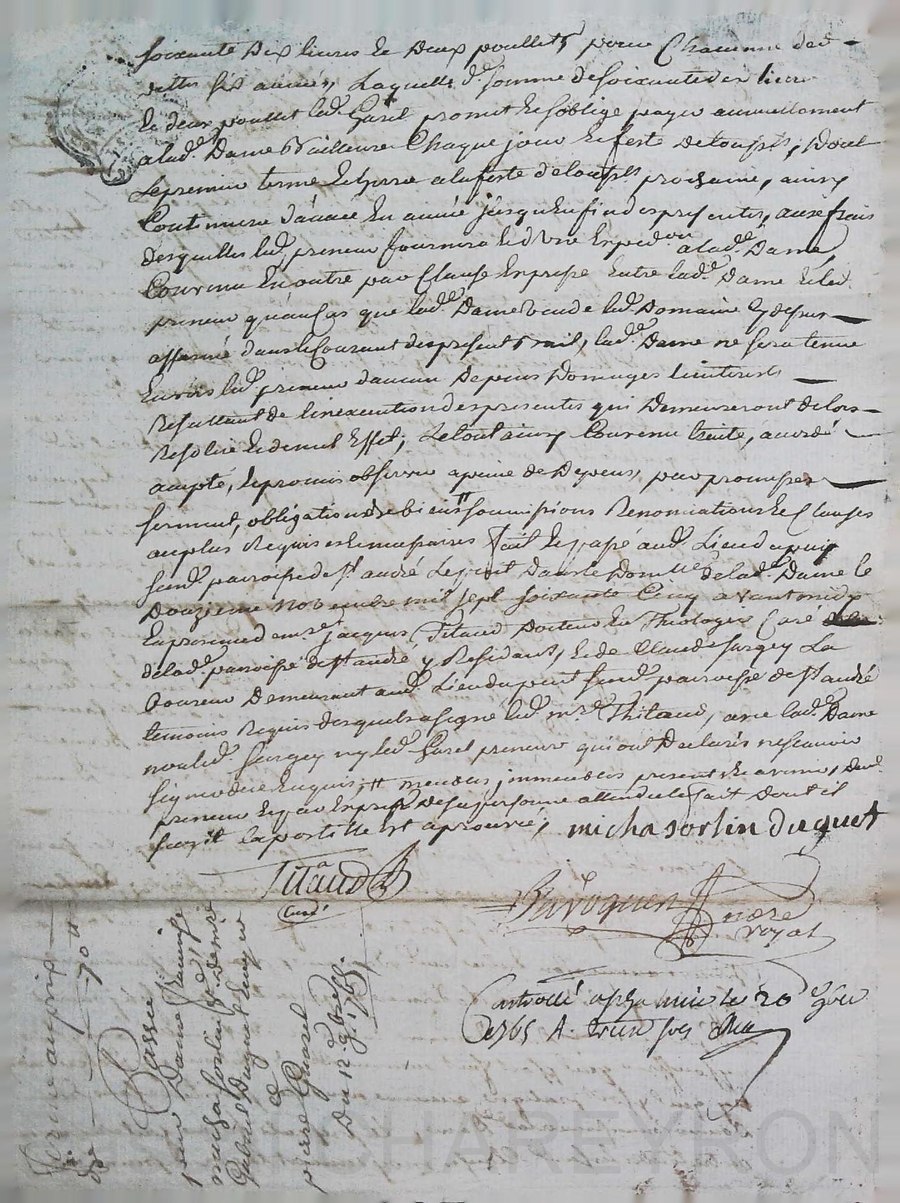 soixante dix livres et deux poullets pour chacunne des
dittes six années, laquelle dte somme de soixante dix livres
et deux poullet led. Garel promet et soblige payer annuellement
a lad. Dame Bailleure chaque jour et feste de toussts, dont
le premier terme echerra a la feste de toussts prochaine, ainsy
continuera dannée en année jusqu en fin des presentes, aux frais
desquelles led. preneur fournira expedon a lad. Dame,
Convenu en outre par clause expresse entre lad. Dame et led.
preneur qu'au cas que lad. Dame vende led. Domaine cy dessus
affermé dans le courant des present bail, lad. Dame ne sera tenue
envers led. preneur d'aucun depens domages interests
resultant de linexecution des presentes qui demeureront deslors
resolue et de nul effet; le tout ainsy convenu traité, accordé
accepté, et promis observer a peine de depens, par promesses
serment, obligation de biens soumissions renonciations et clauses
au plus requises et necessaires fait et passé aud. Lieu du
paroisse de st andré le dans le domlle de lad. Dame le
Douzieme novembre mil sept soixante cinq avant midy
en presence de mre jacques Titaud Docteur en Theologie Curé
de lad. paroisse de st andré y residant, et de Claude Sargey La
boureur demeurant aud. Lieu du paroisse de st andré
temoins requis desquels a signé led. mre Thitaud, avec lad. Dame
non led. Sargey ny led. Garel preneur qui ont declarés ne scavoir
signer de ce enquis meubles immeubles present et avenir, dud.
preneur et par expres de sa personne attendu le fait dont il
sagit la postille est aprouvée,
micha sorlin duguet
Titaud
Curé
nore
royal
Controllé ce 20 9bre
1765
prix
70 ll
Basse
pour Dame
micha sorlin
Duguet
a
pierre Garel
Du 12 9bre 1765
CHAREYRON